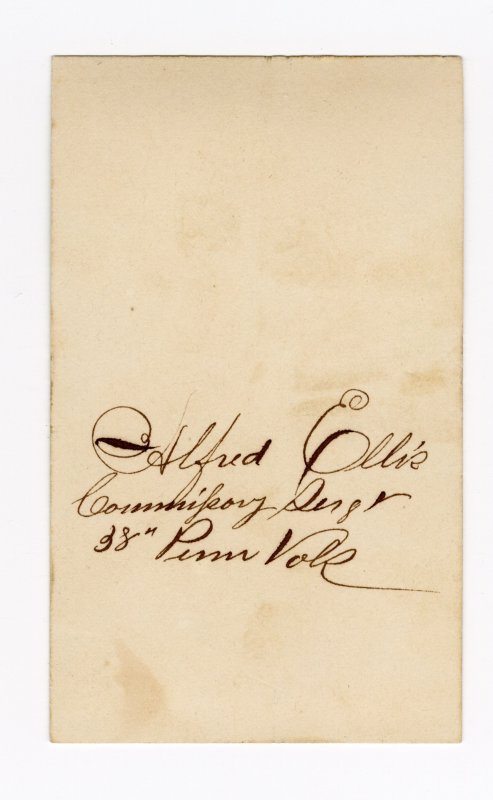 Alfred Ellis
Commissary Sergt
38" Penn Vols